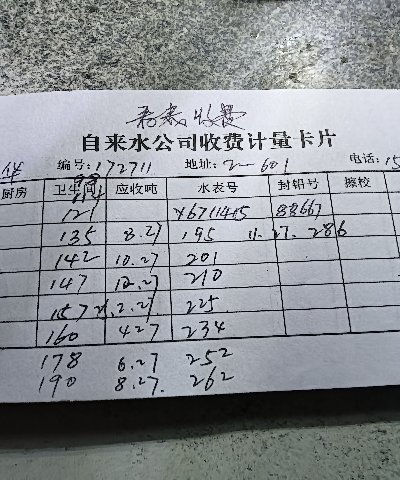 收费
自来水公司收费计量卡片
华 编号: 172711 地址: 2-601 电话: 15
厨房 卫生间 应收吨 水表号 封铅号 擦校
121 88667
135 8.27 195 11.27. 286
142 10.27 201
147 12.27 210
157 2.27 225
160 427 234
178 6.27 252
190 8.27. 262